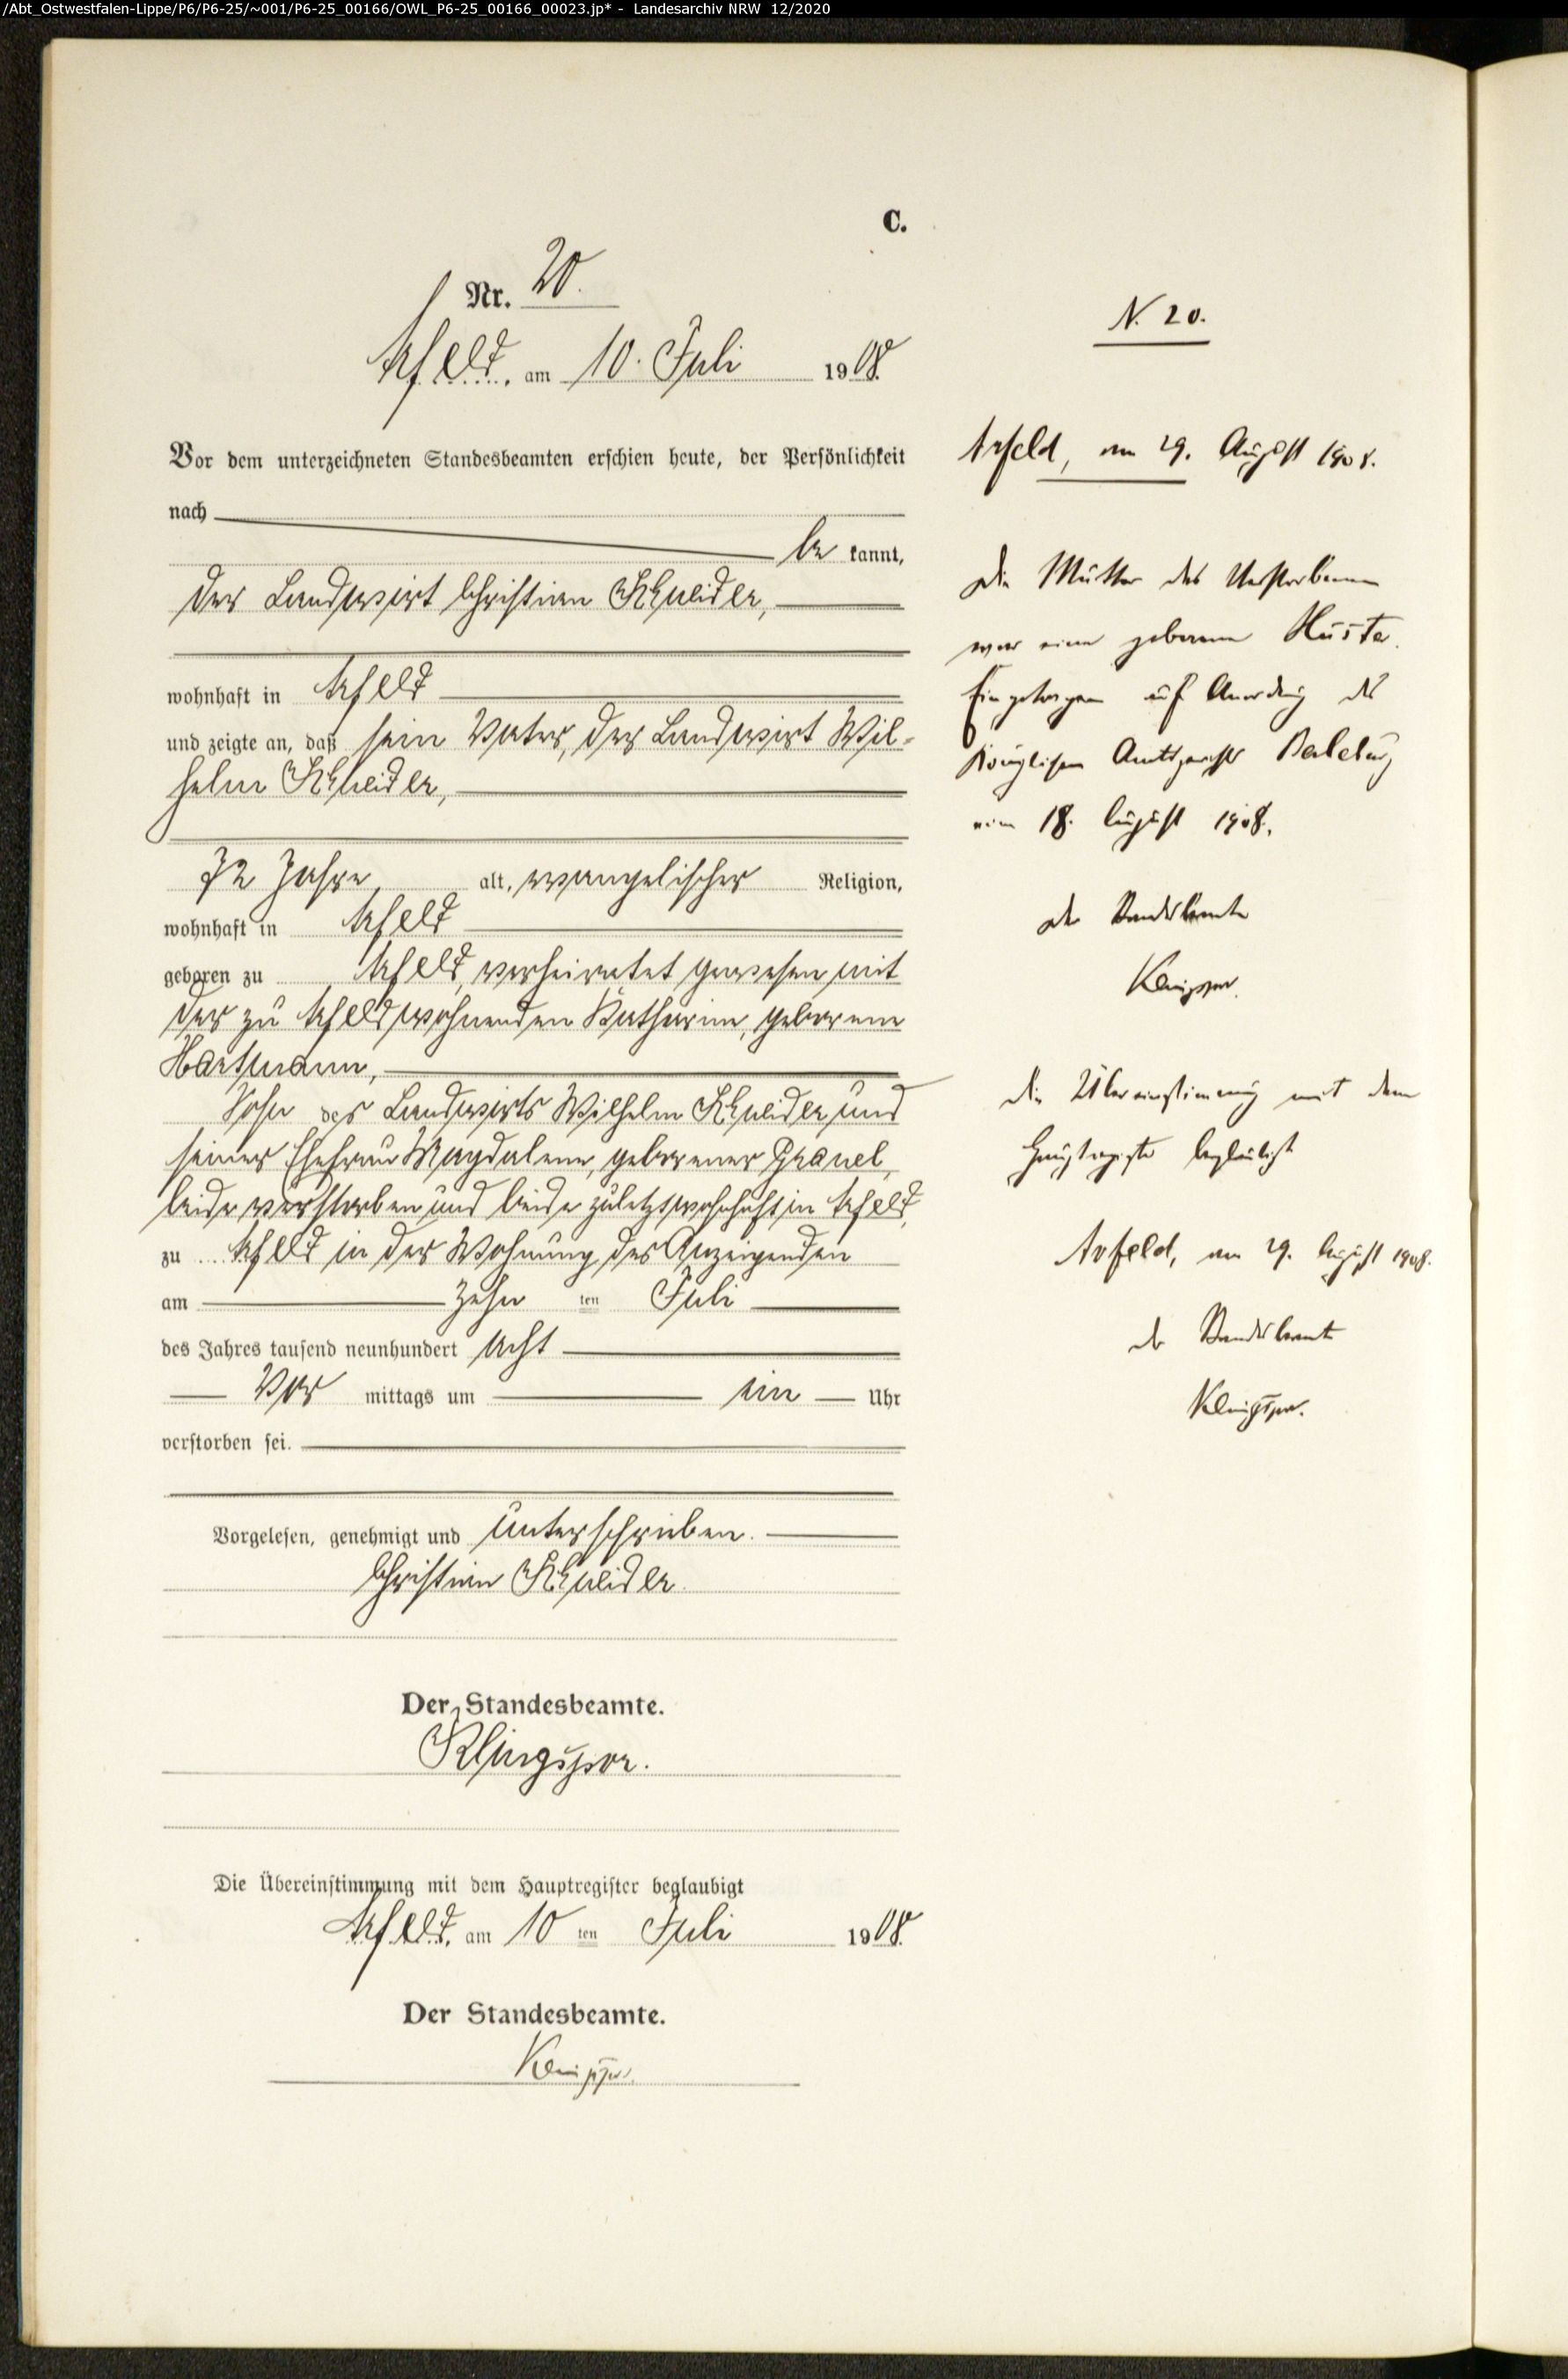 /Abt_Ostwestfalen-Lippe/P6/P6-25/~001/P6-25_00166/OWL_P6-25_00166_00023.jp* - Landesarchiv NRW 12/2020
C.
Nr. 20.
Arfeld, am 10. Juli 1908.
Vor dem unterzeichneten Standesbeamten erschien heute, der Persönlichkeit
nach
be kannt,
der Landwirt Christian Schneider,
wohnhaft in Arfeld
und zeigte an, daß sein Vater, der Landwirt Wil-
helm Schneider,
72 Jahre alt, evangelischer Religion,
wohnhaft in Arfeld
geboren zu Arfeld, verheiratet gewesen mit
der zu Arfeld wohnenden Katharine, geborene
Hartmann,
Sohn des Landwirts Wilhelm Schneider und
seiner Ehefrau Magdalene, geborener
beide verstorben und beide zuletzt wohnhaft in Arfeld,
zu Arfeld in der Wohnung des Anzeigenden
am zehn ten Juli
des Jahres tausend neunhundert acht
Vor mittags um ein Uhr
verstorben sei.
Vorgelesen, genehmigt und unterschrieben.
Christian Schneider.
Der Standesbeamte.
Klingspor.
Die Übereinstimmung mit dem Hauptregister beglaubigt
Arfeld, am 10 ten Juli 1908.
Der Standesbeamte.
Klingspor.
N. 20.
Arfeld, am 29. August 1908.
Die Mutter des Verstorbenen
war eine geborene Huster.
Eingetragen auf Anordnung des
Königlichen Amtsgerichts Berleburg
vom 18. August 1908.
Der Standesbeamte
Klingspor.
Die Übereinstimmung mit dem
Hauptregister beglaubigt
Arfeld, am 29. August 1908.
Der Standesbeamte
Klingspor.